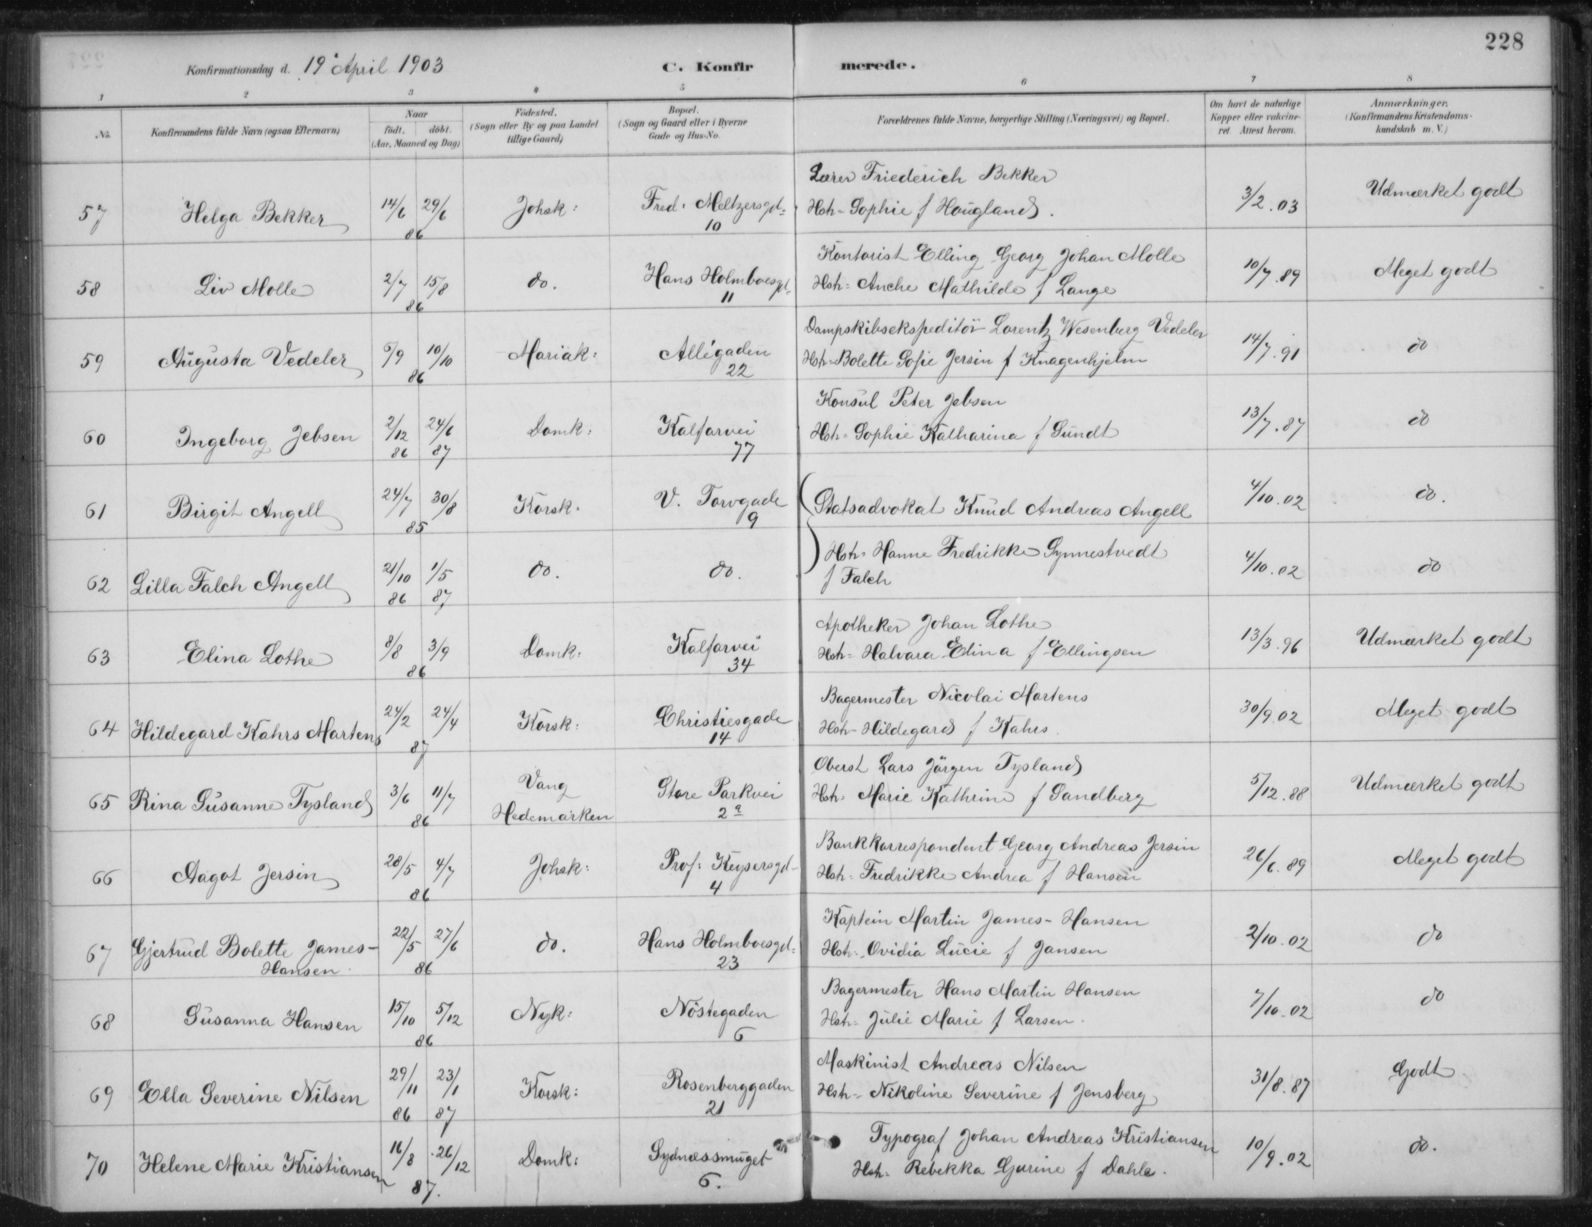 228
Konfirmationsdag d. 19' April 1903
C. Konfirmerede.
1 2 3 4 5 6 7 8
No. Konfirmandens fulde Navn (ogsaa Efternavn) Naar født, døbt. (Aar, Maaned og Dag) Fødested. (Sogn eller By og paa Landet tillige Gaard) Bopæl. (Sogn og Gaard eller i Byerne Gade og Hus-No. Forældrenes fulde Navne, borgerlige Stilling (Næringsvei) og Bopæl. Om havt de naturlige Kopper eller vaccineret. Attest herom. Anmærkninger. (Konfirmandens Kristendomskundskab m. V.)
57 Helga Bekker 14/6 29/6 86 Johsk: Fred. Meltzersgd: 10 Lærer Friederich Bekker Hst- Sophie f Hougland. 3/2.03 Udmærket godt
58 Liv Molle 2/7 15/8 86 do. Hans Holmboesgd- 11 Kontorist Elling Georg Johan Molle Hst: Anche Mathilde f Lange 10/7.89 Meget godt
59 Augusta Vedeler 5/9 10/10 86 Mariak: Allégaden 22 Dampskibsekspeditör Lorentz Wesenberg Vedeler Hst- Bolette Sofie Jersin f Knagenhjelm 14/7.91 do
60 Ingeborg Jebsen 2/12 86 24/6 87 Domk: Kalfarvei 77 Konsul Peter Jebsen Hst- Sophie Katharina f Sundt 13/7.87 do
61 Birgit Angell 24/7 30/8 85 Korsk. V. Torvgade 9 Statsadvokat Knud Andreas Angell 4/10.02 do.
62 Lilla Falch Angell 21/10 86 1/5 87 do. do. Hst- Hanne Fredrikke Synnestvedt f Falch 4/10.02 do
63 Elina Lothe 8/8 3/9 86 Domk. Kalfarvei 34 Apotheker Johan Lothe Hst- Halvara Elina f Ellingsen 13/3.96 Udmærket godt
64 Hildegard Kahrs Martens 24/2 24/4 87 Korsk: Christiesgade 14 Bagermester Nicolai Martens Hst- Hildegard f Kahrs. 30/9.02 Meget godt
65 Rina Susanne Tysland 3/6 11/7 86 Vang Hedemarken Store Parkvei 2a Oberst Lars Jörgen Tysland Hst. Marie Kathrine f Sandberg 5/12.88 Udmærket godt
66 Aagot Jersin 28/5 4/7 86 Johsk: Prof: Keysersgd- 4 Bankkorrespondent Georg Andreas Jersin Hst- Fredrikke Andrea f Hansen 26/6.89 Meget godt
67 Gjertrud Bolette James-Hansen. 22/5 27/6 86 do. Hans Holmboesgd: 23 Kaptein Martin James-Hansen Hst- Ovidia Lucie f Jansen 2/10.02 do
68 Susanna Hansen 15/10 5/12 86 Nyk: Nöstegaden 6 Bagermester Hans Martin Hansen Hst- Julie Marie f Larsen. 7/10.02 do
69 Ella Severine Nilsen 29/11 86 23/1 87 Korsk: Rosenberggaden 21 Maskinist Andreas Nilsen Hst- Nikoline Severine f Jensberg 31/8.87 Godt
70 Helene Marie Kristiansen 16/8 26/12 87. Domk: Sydnæssmuget 6. Typograf Johan Andreas Kristiansen Hst. Rebekka Gurine f Dahle. 10/9.02 do.